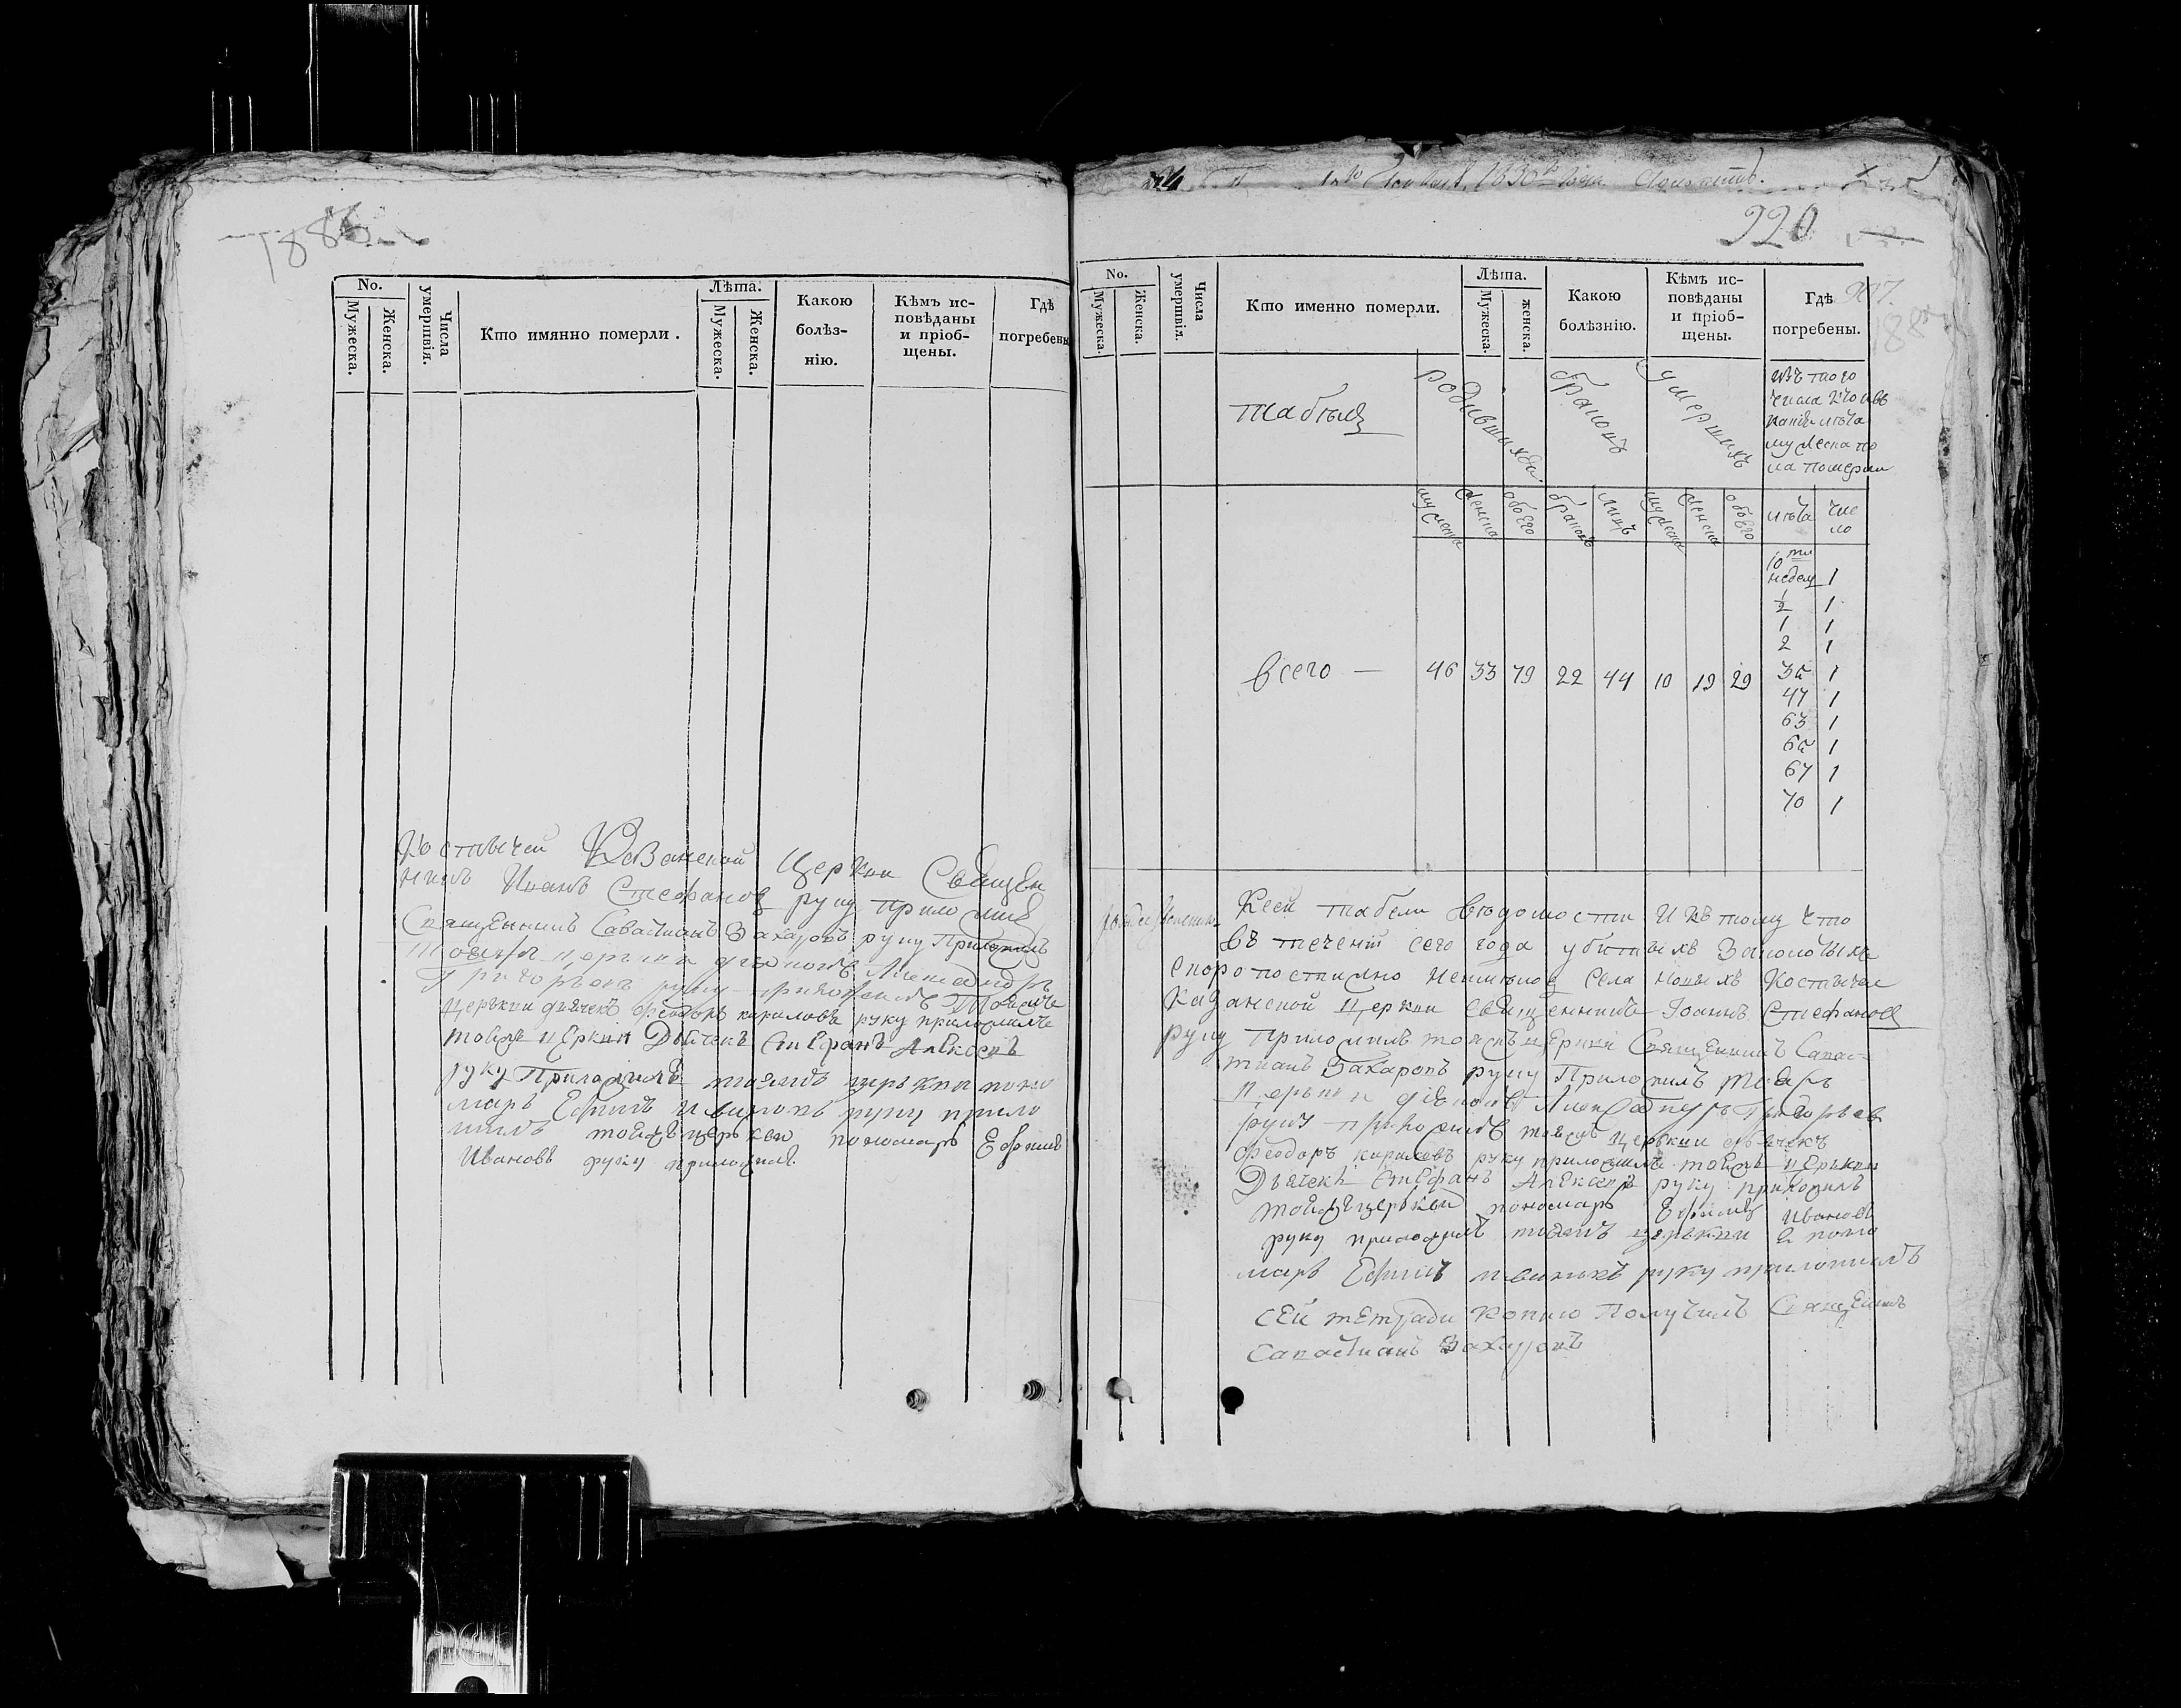 188
No.
Мужеска.
Женска.
Числа умершвія.
Кто имянно померли.
Лѣта.
Мужеска.
Женска.
Какою болѣз-
нію.
Кѣмъ ис-
повѣданы
и пріоб-
щены.
Гдѣ
погребены
Костычей Казанской Церкви Священ
никъ Иванъ Стефановъ руку приложилъ
Священникъ Саватианъ Захаровъ руку Приложилъ
Тоежъ церкви диаконъ Александръ
Григорьевъ руку приложилъ Тоежъ
церкви дьячекъ Феодоръ кириловъ руку приложилъ
тоежъ церкви Дьячекъ Стефанъ Алексеевъ
руку Приложилъ тоежъ церкви поно
марь Ефимъ руку прило
жилъ тойжъ церкви пономарь Ефимъ
Ивановъ руку приложилъ
1830 года
920
907.
No.
Мужеска.
Женска.
Числа умершвія.
Кто именно померли.
Лѣта.
Мужеска.
женска.
Какою
болѣзнію.
Кѣмъ ис-
повѣданы
и пріоб-
щены.
Гдѣ
погребены.
табель
родившихся
браковъ
умершихъ
изъ того
числа
лѣта
мужеска по
ла померли
мужеска
женска
обоего
браковъ
лицъ
мужеска
женска
обоего
лѣта
чис
ло
10 ти
недель 1
½ 1
1 1
2 1
всего — 46 33 79 22 44 10 19 29
35 1
47 1
63 1
65 1
67 1
70 1
Ксей табели ведомости и къ тому что
въ течении сего года убитыхъ
скоропостижно неимелось Села новыхъ Костычей
Казанской Церкви священникъ Иоаннъ Стефановъ
руку приложилъ тоежъ церкви Священникъ Савас-
тианъ Захаровъ руку Приложилъ тоежъ
церкви диаконъ Александръ Григорьев
руку приложилъ тоежъ церкви дьячекъ
Феодоръ кириловъ руку приложилъ тоежъ церкви
Дьячекъ Стефанъ Алексеевъ руку приложилъ
тойжъ церкви пономарь Ефимъ Ивановъ
руку приложилъ тоежъ церкви поно
марь Ефимъ руку приложилъ
сей тетради копию Получилъ Священникъ
Савастианъ Захаровъ